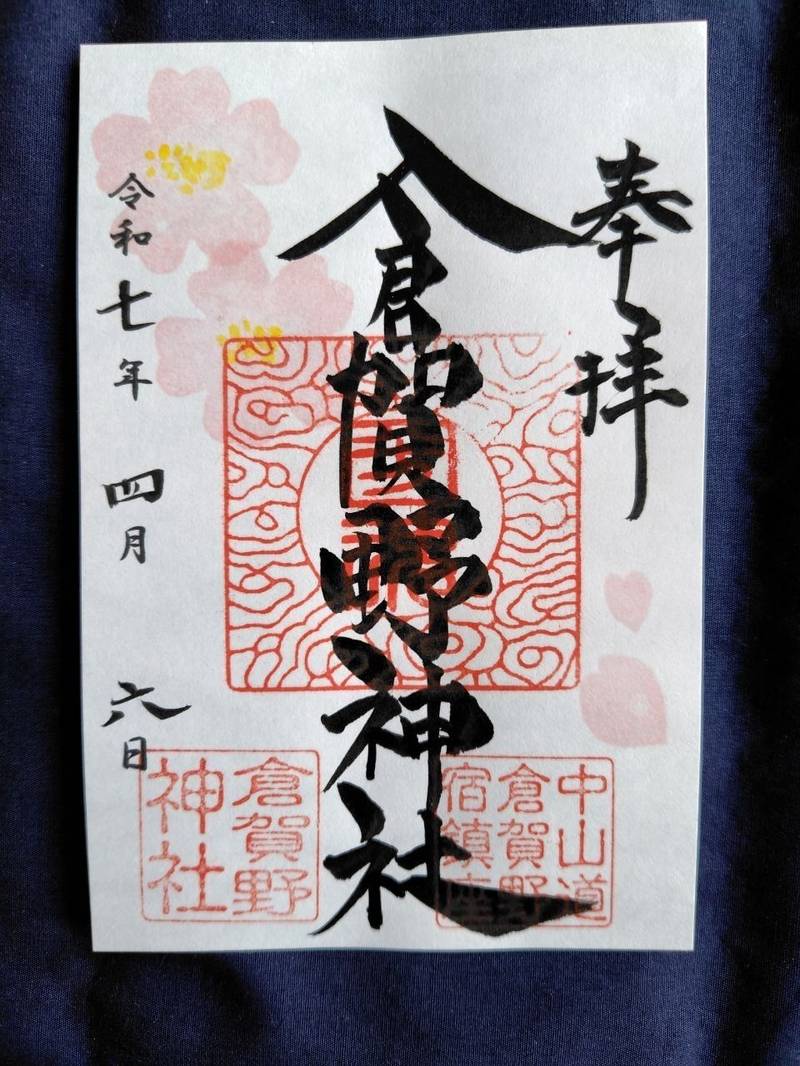 奉拝
倉賀野神社
令和七年 四月 六日
中山道
倉賀野
宿鎮座
倉賀野
神社